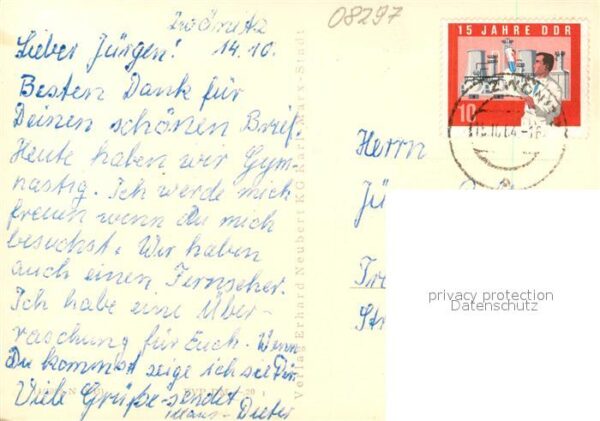 Zwönitz
Lieber Jürgen! 14.10.
Besten Dank für
Deinen schönen Brief.
Heute haben wir Gym-
nastig. Ich werde mich
freuen wenn Du mich
besuchst. Wir haben
auch einen Fernseher.
Ich habe eine Über-
raschung für Euch. Wenn
Du kommst zeige ich sie Dir.
Viele Grüße sendet
Klaus-Dieter
Verlag Erhard Neubert KG Karl-Marx-Stadt
08297
15 JAHRE DDR
10
ZWÖNITZ
Herrn
privacy protection
Datenschutz